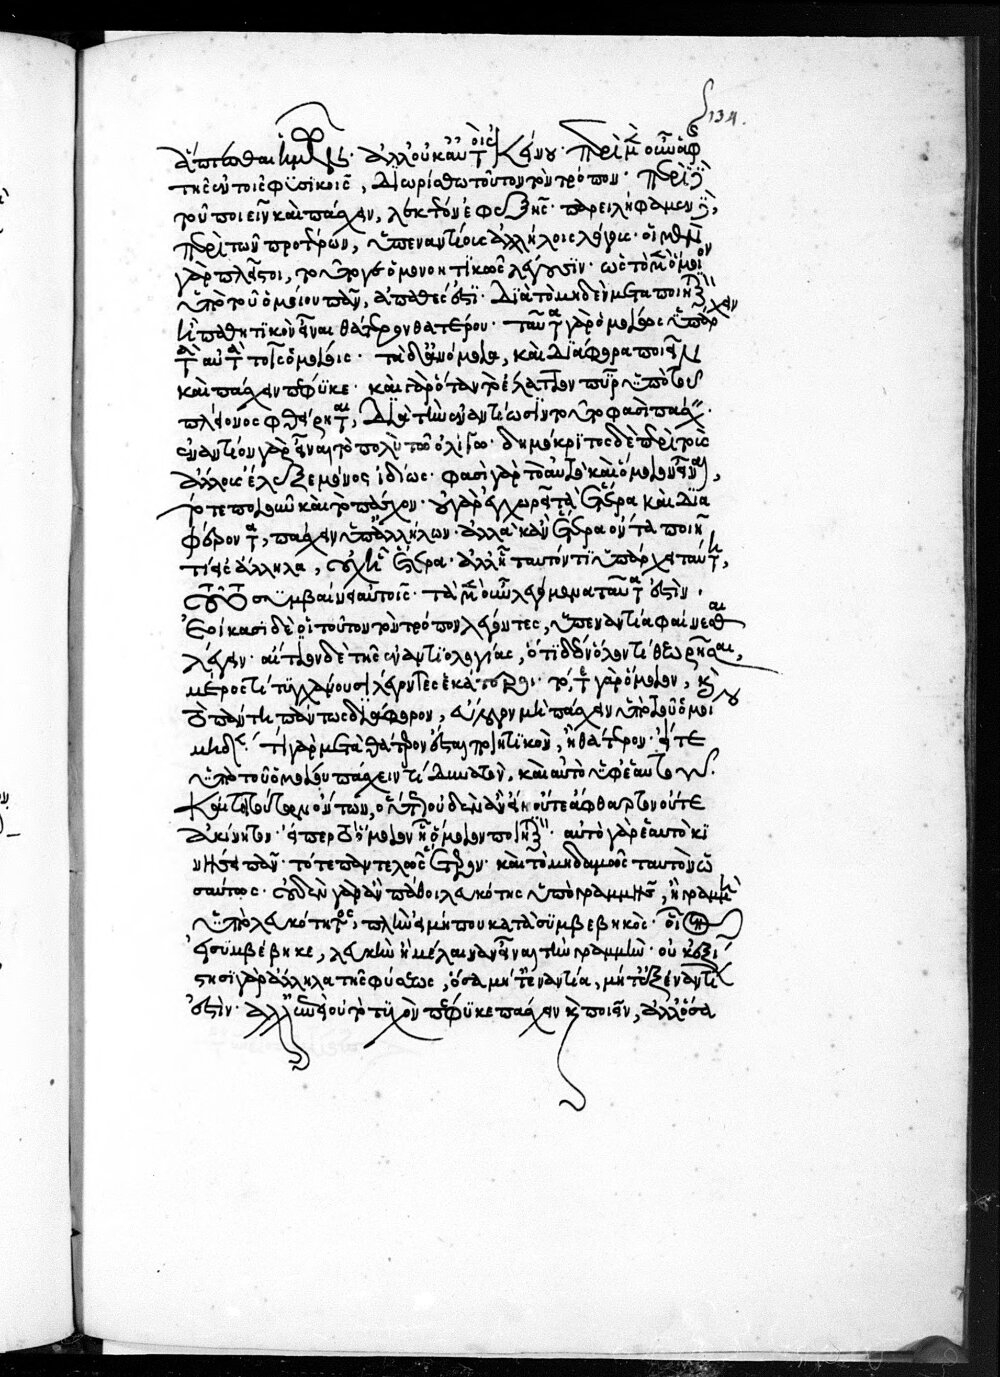 ἅπτεσθαι ἡμῶν· ἀλλ' οὐκ αὐτοὶ ἐκείνου· περὶ μὲν οὖν ἁφ
τῆς ἐν τοῖς φυσικοῖς, διωρίσθω τοῦτον τὸν τρόπον· περὶ δὲ
τοῦ ποιεῖν καὶ πάσχειν, λεκτέον ἐφεξῆς· παρειλήφαμεν δὲ,
περὶ τῶν προτέρων, ὑπεναντίοις ἀλλήλοις λόγοις· οἱ μὲν
γὰρ πλεῖστοι, τοῦτό γε ὁμονοητικῶς λέγουσιν· ὡς τὸ μὲν ὅμοιον
ὑπὸ τοῦ ὁμοίου πᾶν, ἀπαθές ἐστι· διὰ τὸ μηδὲν μᾶλλον ποιητικὸν
ἢ παθητικὸν εἶναι θάτερον θατέρου· πάντα γὰρ ὁμοίως ὑπάρχειν
ταὐτὰ τοῖς ὁμοίοις· τὰ δ' ἀνόμοια, καὶ διάφορα ποιεῖν
καὶ πάσχειν πέφυκε· καὶ γὰρ ὅταν τὸ ἔλαττον πῦρ ὑπὸ τοῦ
πλείονος φθείρηται, διὰ τὴν ἐναντίωσιν τοῦτό φασι πάσχειν·
ἐναντίον γὰρ εἶναι τὸ πολὺ τῷ ὀλίγῳ· δημόκριτος δὲ περὶ τοὺς
ἄλλους ἔλεξε μόνος ἰδίως· φασὶ γὰρ τὸ αὐτὸ καὶ ὅμοιον εἶναι,
τό τε ποιοῦν καὶ τὸ πάσχον· οὐ γὰρ ἐγχωρεῖ τὰ ἕτερα καὶ δια
φέροντα, πάσχειν ὑπ' ἀλλήλων· ἀλλὰ κἂν ἕτερα ὄντα ποιῇ
τι εἰς ἄλληλα, οὐχ ᾗ ἕτερα· ἀλλ' ᾗ ταυτόν τι ὑπάρχει ταύτῃ,
τοῦτο συμβαίνει αὐτοῖς· τὰ μὲν οὖν λεγόμενα ταῦτα ἐστίν·
Ἐοίκασι δὲ οἱ τοῦτον τὸν τρόπον λέγοντες, ὑπεναντία φαίνεσθαι
λέγειν· αἴτιον δὲ τῆς ἐναντιολογίας, ὅτι δέον ὅλον τι θεωρῆσαι,
μέρος τι τυγχάνουσι λέγοντες ἑκάτεροι· τό, τε γὰρ ὅμοιον, καὶ
τὸ πάντη πάντως ἀδιάφορον, εὔλογον μὴ πάσχειν ὑπὸ τοῦ ὁμοίου
μηδέν· τί γὰρ μᾶλλον θάτερον ἔσται ποιητικὸν, ἢ θάτερον· εἴτε
ὑπὸ τοῦ ὁμοίου πάσχειν τί δυνατὸν, καὶ αὐτὸ ὑφ' ἑαυτοῦ·
Καίτοι τούτων ὄντων, οὕτως οὐδὲν ἂν εἴη οὔτε ἄφθαρτον οὔτε
ἀκίνητον· εἴπερ τὸ ὅμοιον ᾗ ὅμοιον ποιητικόν· αὐτὸ γὰρ ἑαυτὸ κι
νήσει πᾶν· τό τε παντελῶς ἕτερον· καὶ τὸ μηδαμῶς ταυτὸν ὡ
σαύτως· οὐδὲν γὰρ ἂν πάθοι λευκότης ὑπὸ γραμμῆς, ἢ γραμμὴ
ὑπὸ λευκότητος, πλὴν εἰ μή που κατὰ συμβεβηκὸς· οἷον
εἰ συμβέβηκε, λευκὴν ἢ μέλαιναν εἶναι τὴν γραμμὴν· οὐκ ἐξί
στησι γὰρ ἄλληλα τῆς φύσεως, ὅσα μήτ' ἐναντία, μήτ' ἐξ ἐναντίων
ἐστίν· ἀλλ' ἐπεὶ οὐ τὸ τυχὸν πέφυκε πάσχειν καὶ ποιεῖν, ἀλλ' ὅσα